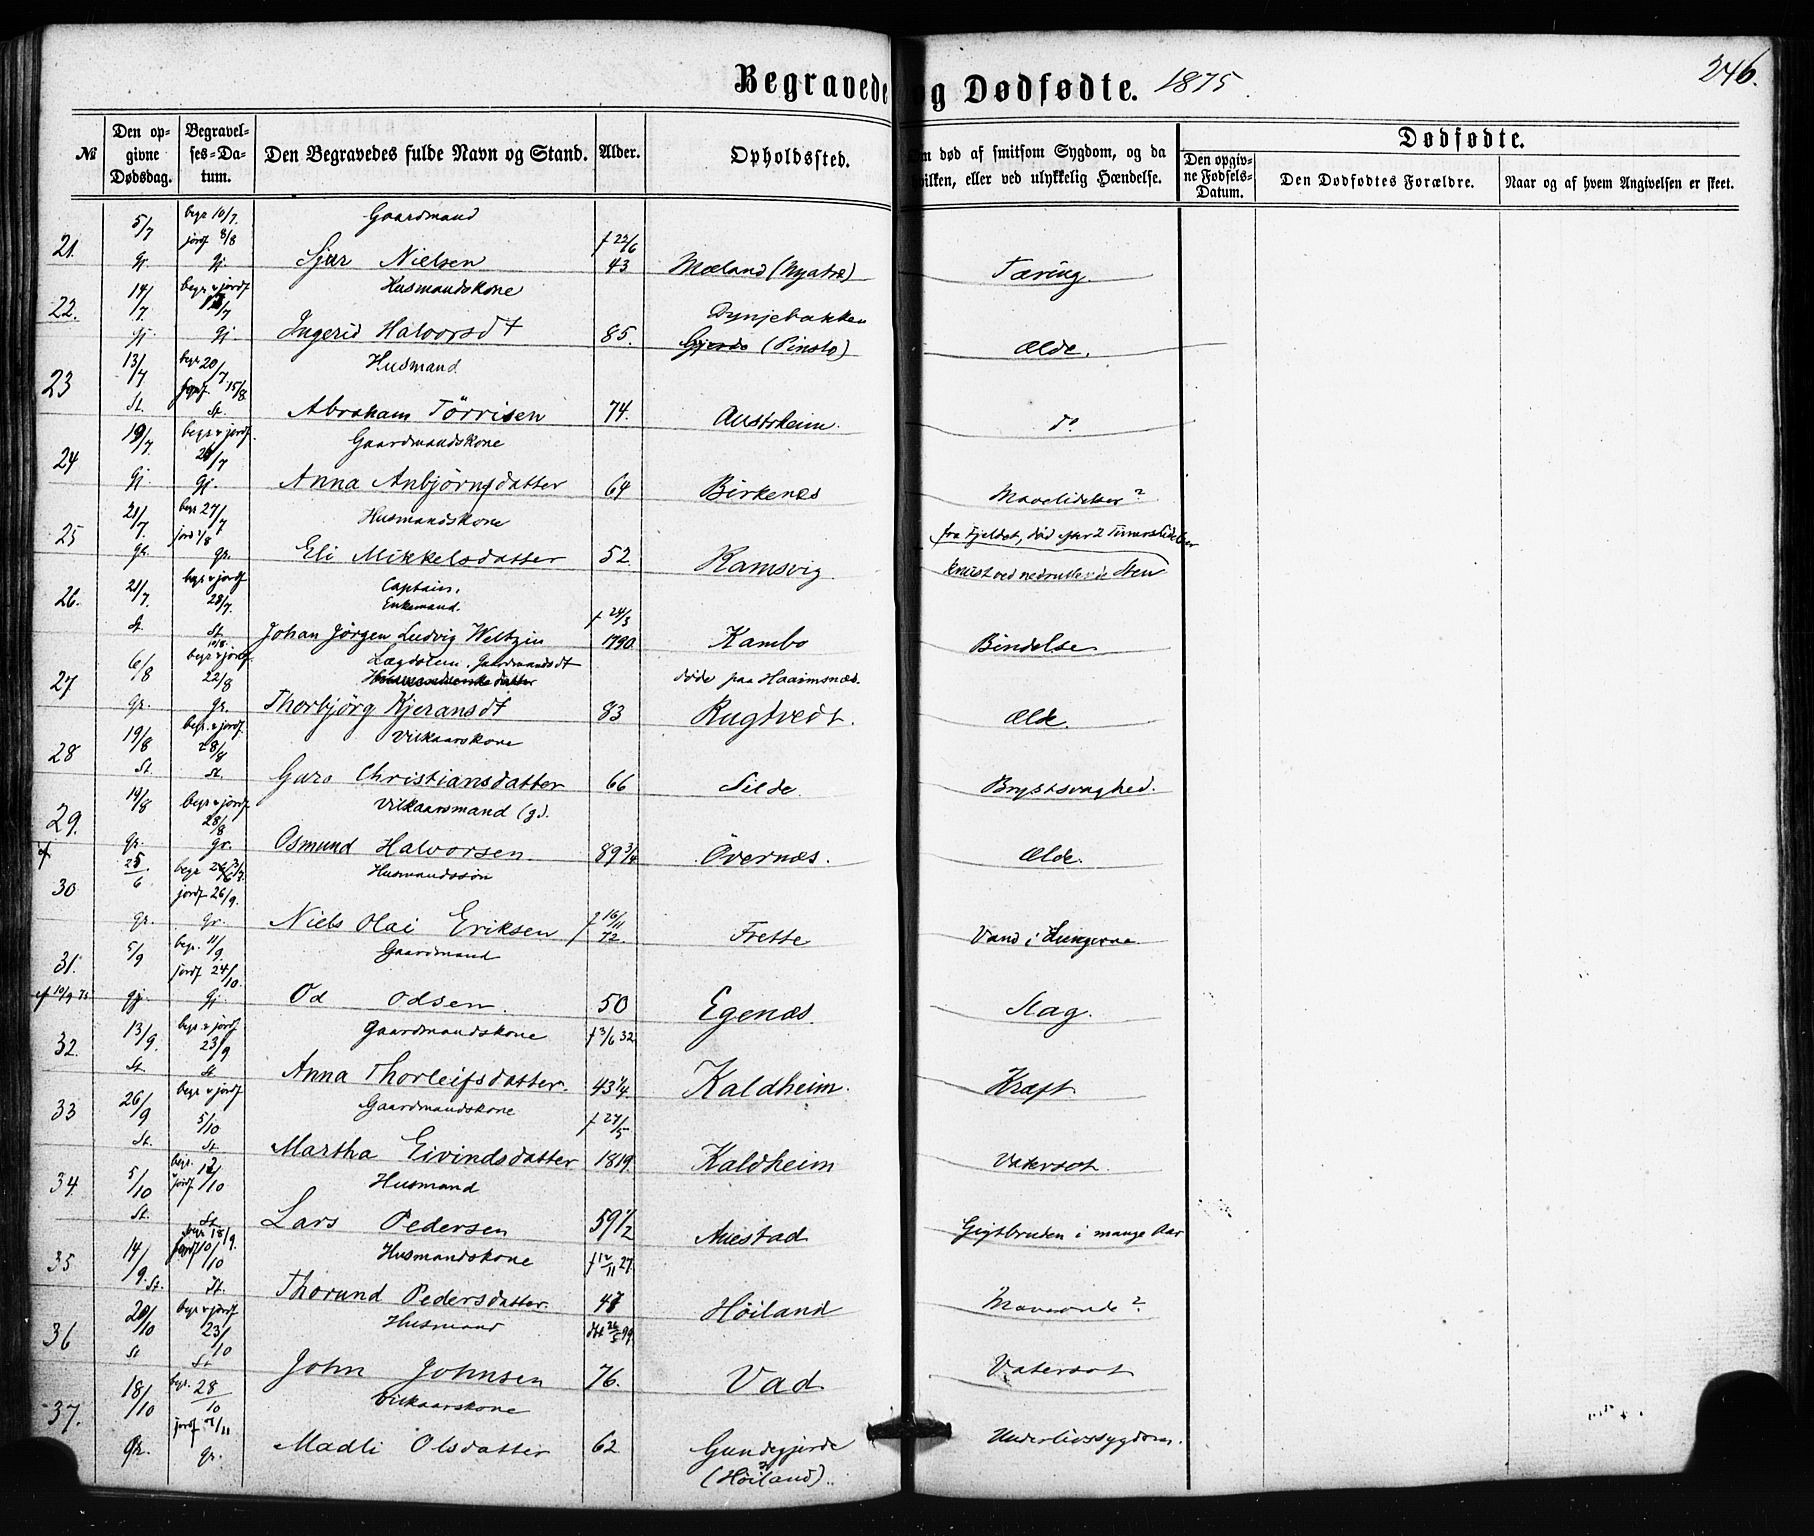 246.
Begravede og Dødfødte. 1875.
№
Den opgivne Dødsdag.
Begravelses-Datum.
Den Begravedes fulde Navn og Stand.
Alder.
Opholdssted.
Om død af smitsom Sygdom, og da hvilken, eller ved ulykkelig Hændelse.
Dødfødte.
Den opgivne Fødsels-Datum.
Den Dødfødtes Forældre.
Naar og af hvem Angivelsen er skeet.
21. 5/7 gj. begr 10/7. jordf 8/8 gj. Gaardmand
Sjur Nielsen f 22/6 43 Mæland (Nyatræ) Tæring.
22. 14/7. gj. begr & jordf /7 gj. Husmandskone
Ingerid Halvorsdt 85. Dynjebakken (Pinsto) Ælde.
23 13/7 St. begr 20/7 jordf. 15/8. St. Husmand
Abraham Törrisen 74. Austrheim. do
24 19/7. gj. begr & jordf. /7 gj. Gaardmandskone
Anna Anbjörnsdatter 64 Birkenæs Mavelidelser?
25 21/7. gr. begr 27/7 jord 1/8 gr. Husmandskone
Eli Mikkelsdatter 52. Ramsvig. knust ved nedrullende Sten fra Fjeldet, død efter 2 Timers Lidelser
26. 21/7. St. begr & jordf 28/7. St Captain, Enkemand.
Johan Jörgen Ludvig Weltzin f 24/3 1790. Kambo Bindelse
27 6/8 gr. begr & jordf. 22/8 gr. Lægdslem. Gaardmandsdt
Thorbjörg Kjeransdt 83 döde paa Haaimsnæs. Rugtvedt. Ælde.
28 19/8 St begr. & jordf. 28/8 St. Vilkaarskone
Guro Christiansdatter 66 Silde. Brystsvaghed.
29. 19/8 gr. begr & jordf 28/8 gr. Vilkaarsmand (g).
Osmund Halvorsen. 89 3/4 Övernæs. Ælde.
30 25/6 gr. begr jordf 26/9. gr. Husmandssön
Niels Olai Eriksen f 16/11 72. Frette Vand i Lungerne
31. 5/9 gj. begr. 11/9. jordf 24/10. gj. Gaardmand
Od Odsen. 50 Egenæs. Slag.
32. 13/9. St begr & jordf 23/9 St Gaardmandskone
Anna Thorleifsdatter. f 3/6 32. 43 1/4. Kaldheim. Kræft
33 26/9 St. begr & jordf 5/10 St Gaardmandskone
Martha Eivindsdatter f 27/5 1819. Kaldheim Vatersot.
34. 5/10 St. begr. jordf /10 St Husmand
Lars Pedersen 59 1/2 Auestad Gigtbruden i mange Aar
35 14/9. St. begr 18/9. jordf 10/10 St. Husmandskone
Thorund Pedersdatter. f 12/11 27. Höiland Maveonde?
36 20/10 St begr & jordf 23/10 St Husmand
John Johnsen 76. Vad Vatersot
37. 18/10 gr. begr. 28/10 jordf 7/11 gr. Vilkaarskone
Madli Olsdatter 62 Gundegjerde (Höiland). Underlivssygdom.